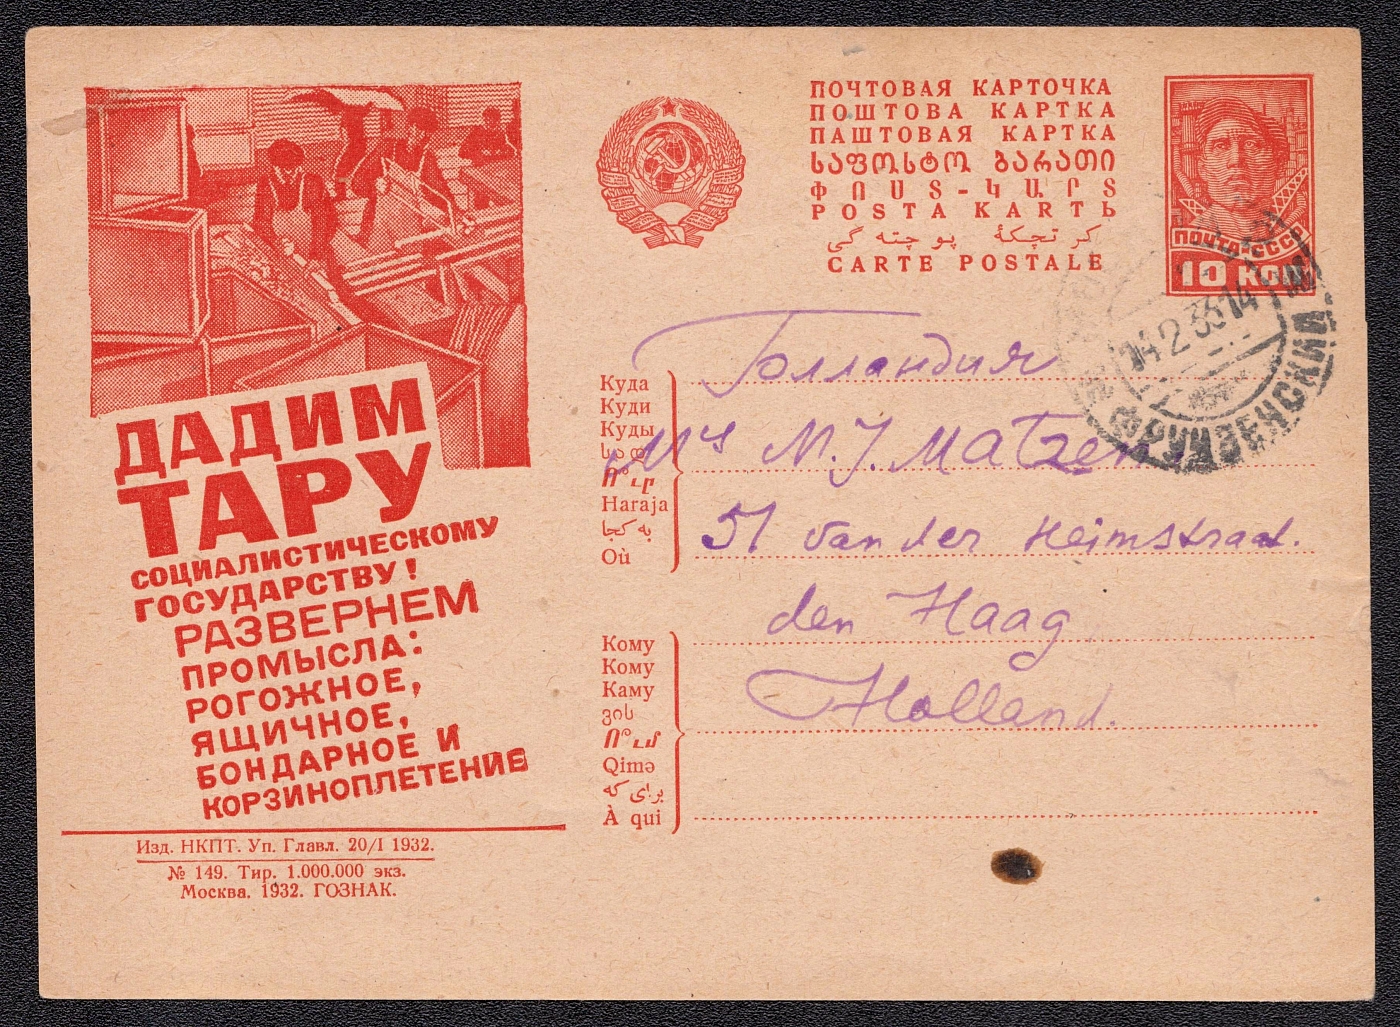 ДАДИМ
ТАРУ
СОЦИАЛИСТИЧЕСКОМУ
ГОСУДАРСТВУ!
РАЗВЕРНЕМ
ПРОМЫСЛА:
РОГОЖНОЕ,
ЯЩИЧНОЕ,
БОНДАРНОЕ И
КОРЗИНОПЛЕТЕНИЕ
Изд. НКПТ. Уп. Главл. 20/I 1932.
№ 149. Тир. 1.000.000 экз.
Москва. 1932. ГОЗНАК.
ПОЧТОВАЯ КАРТОЧКА
ПОШТОВА КАРТКА
ПАШТОВАЯ КАРТКА
ႱႠႴႭႱႲႭ ႡႠႰႠႧႨ
ՓՈՍՏ-ԿԱՐՏ
POSTA KARTЬ
كرتچكهٔ پوچته گی
CARTE POSTALE
ПОЧТА СССР
10 КОП
14 2 33 14
ФРУНЗЕНСКИЙ
Куда
Куди
Куды
Ո՞ւր
Haraja
به كجا
Où
Голландия
Mrs N. J. Matzen
51 van der Heimstraat.
den Haag
Holland.
Кому
Кому
Каму
ვის
Ո՞ւմ
Qimə
برای كه
À qui